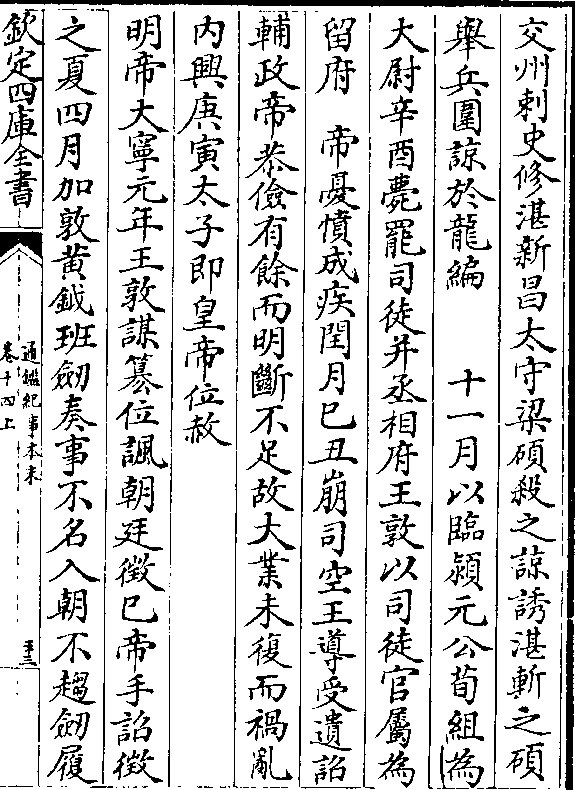 交州刺史修湛新昌太守梁碩殺之諒誘湛斬之碩
舉兵圍諒於龍編　十一月以臨潁元公荀組為
大尉辛酉薨罷司徒并丞相府王敦以司徒官屬為
留府　帝憂憤成疾閏月已丑崩司空王導受遺詔
輔政帝恭儉有餘而明斷不足故大業未復而禍亂
内興庚寅太子即皇帝位赦
明帝大寧元年王敦謀篡位諷朝廷徵已帝手詔徵
之夏四月加敦黄鉞班劒奏事不名入朝不趨劒履
欽定四庫全書
通鑑紀事本末
卷十四上